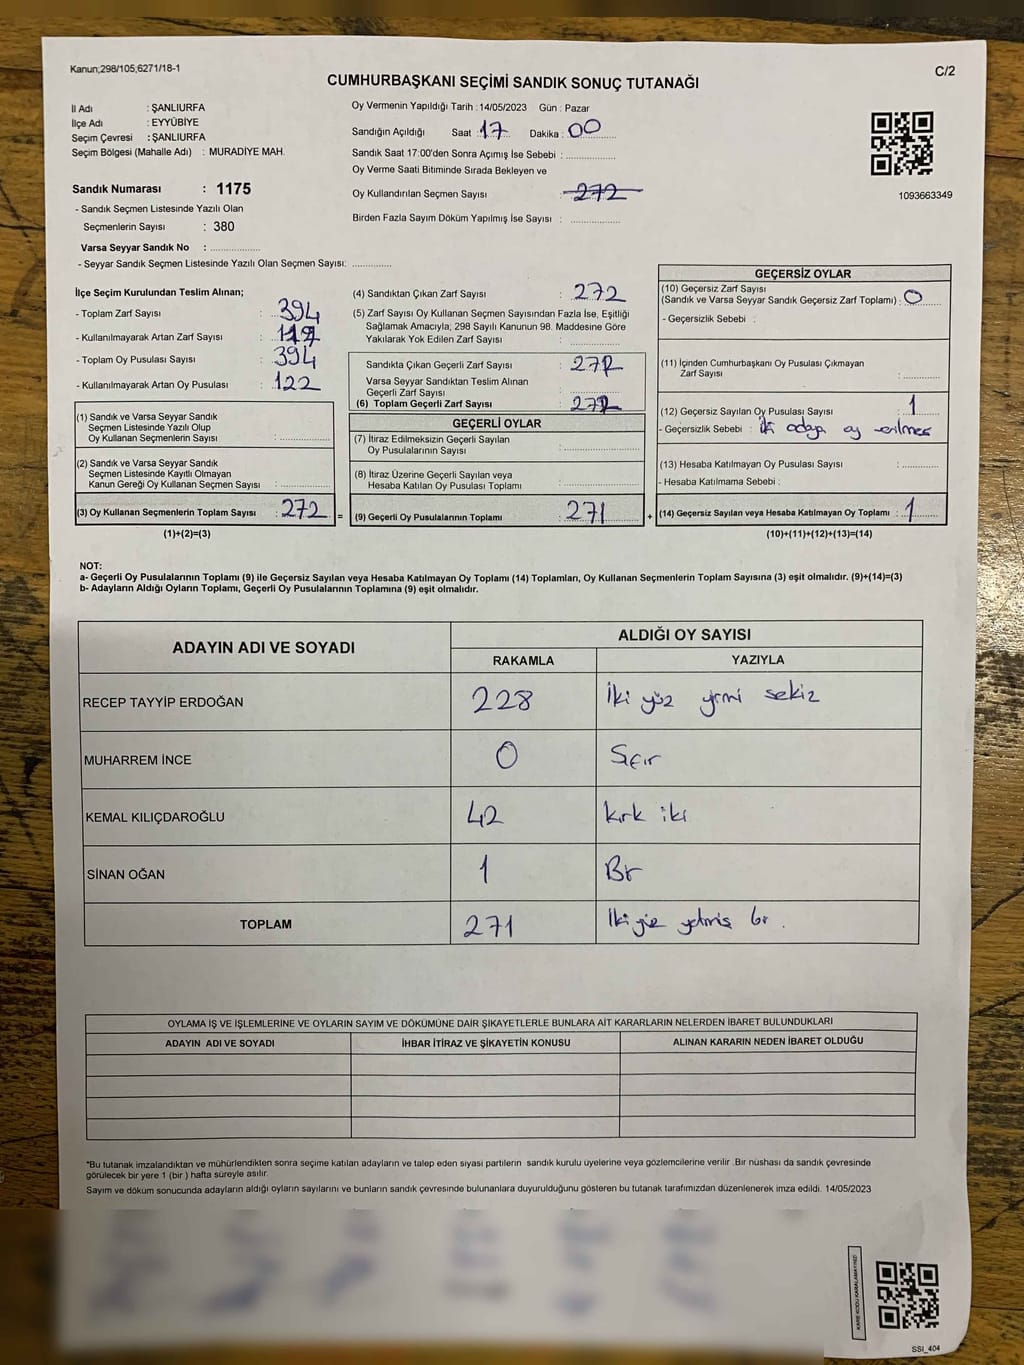 Kanun;298/105;6271/18-1
C/2
CUMHURBAŞKANI SEÇİMİ SANDIK SONUÇ TUTANAĞI
İl Adı : ŞANLIURFA
İlçe Adı : EYYÜBİYE
Seçim Çevresi : ŞANLIURFA
Seçim Bölgesi (Mahalle Adı) : MURADİYE MAH.
Sandık Numarası : 1175
- Sandık Seçmen Listesinde Yazılı Olan
Seçmenlerin Sayısı : 380
Varsa Seyyar Sandık No :
- Seyyar Sandık Seçmen Listesinde Yazılı Olan Seçmen Sayısı:
Oy Vermenin Yapıldığı Tarih :14/05/2023 Gün : Pazar
Sandığın Açıldığı Saat : 17 Dakika : 00
Sandık Saat 17:00'den Sonra Açımış İse Sebebi :
Oy Verme Saati Bitiminde Sırada Bekleyen ve
Oy Kullandırılan Seçmen Sayısı : 272
Birden Fazla Sayım Döküm Yapılmış İse Sayısı :
1093663349
İlçe Seçim Kurulundan Teslim Alınan;
- Toplam Zarf Sayısı : 394
- Kullanılmayarak Artan Zarf Sayısı :
- Toplam Oy Pusulası Sayısı : 394
- Kullanılmayarak Artan Oy Pusulası : 122
(1) Sandık ve Varsa Seyyar Sandık
Seçmen Listesinde Yazılı Olup
Oy Kullanan Seçmenlerin Sayısı :
(2) Sandık ve Varsa Seyyar Sandık
Seçmen Listesinde Kayıtlı Olmayan
Kanun Gereği Oy Kullanan Seçmen Sayısı :
(3) Oy Kullanan Seçmenlerin Toplam Sayısı : 272 =
(1)+(2)=(3)
(4) Sandıktan Çıkan Zarf Sayısı : 272
(5) Zarf Sayısı Oy Kullanan Seçmen Sayısından Fazla İse, Eşitliği
Sağlamak Amacıyla; 298 Sayılı Kanunun 98. Maddesine Göre
Yakılarak Yok Edilen Zarf Sayısı :
Sandıkta Çıkan Geçerli Zarf Sayısı : 272
Varsa Seyyar Sandıktan Teslim Alınan
Geçerli Zarf Sayısı :
(6) Toplam Geçerli Zarf Sayısı : 272
GEÇERLİ OYLAR
(7) İtiraz Edilmeksizin Geçerli Sayılan
Oy Pusulasının Sayısı :
(8) İtiraz Üzerine Geçerli Sayılan veya
Hesaba Katılan Oy Pusulası Toplamı :
(9) Geçerli Oy Pusulalarının Toplamı : 271 +
GEÇERSİZ OYLAR
(10) Geçersiz Zarf Sayısı
(Sandık ve Varsa Seyyar Sandık Geçersiz Zarf Toplamı) : 0
- Geçersizlik Sebebi :
(11) İçinden Cumhurbaşkanı Oy Pusulası Çıkmayan
Zarf Sayısı :
(12) Geçersiz Sayılan Oy Pusulası Sayısı : 1
- Geçersizlik Sebebi : iki adaya oy verilmes
(13) Hesaba Katılmayan Oy Pusulası Sayısı :
- Hesaba Katılmama Sebebi :
(14) Geçersiz Sayılan veya Hesaba Katılmayan Oy Toplamı : 1
(10)+(11)+(12)+(13)=(14)
NOT:
a- Geçerli Oy Pusulalarının Toplamı (9) ile Geçersiz Sayılan veya Hesaba Katılmayan Oy Toplamı (14) Toplamları, Oy Kullanan Seçmenlerin Toplam Sayısına (3) eşit olmalıdır. (9)+(14)=(3)
b- Adayların Aldığı Oyların Toplamı, Geçerli Oy Pusulalarının Toplamına (9) eşit olmalıdır.
ADAYIN ADI VE SOYADI ALDIĞI OY SAYISI
RAKAMLA YAZIYLA
RECEP TAYYİP ERDOĞAN 228 İki yüz yirmi sekiz
MUHARREM İNCE 0 Sıfır
KEMAL KILIÇDAROĞLU 42 kırk iki
SİNAN OĞAN 1 Bir
TOPLAM 271 İki yüz yetmiş bir.
OYLAMA İŞ VE İŞLEMLERİNE VE OYLARIN SAYIM VE DÖKÜMÜNE DAİR ŞİKAYETLERLE BUNLARA AİT KARARLARIN NELERDEN İBARET BULUNDUKLARI
ADAYIN ADI VE SOYADI İHBAR İTİRAZ VE ŞİKAYETİN KONUSU ALINAN KARARIN NEDEN İBARET OLDUĞU
*Bu tutanak imzalandıktan ve mühürlendikten sonra seçime katılan adayların ve talep eden siyasi partilerin sandık kurulu üyelerine veya gözlemcilerine verilir .Bir nüshası da sandık çevresinde
görülecek bir yere 1 (bir ) hafta süreyle asılır.
Sayım ve döküm sonucunda adayların aldığı oyların sayılarını ve bunların sandık çevresinde bulunanlara duyurulduğunu gösteren bu tutanak tarafımızdan düzenlenerek imza edildi. 14/05/2023
KARE KODU KARALAMAYINIZ!
SSI_404